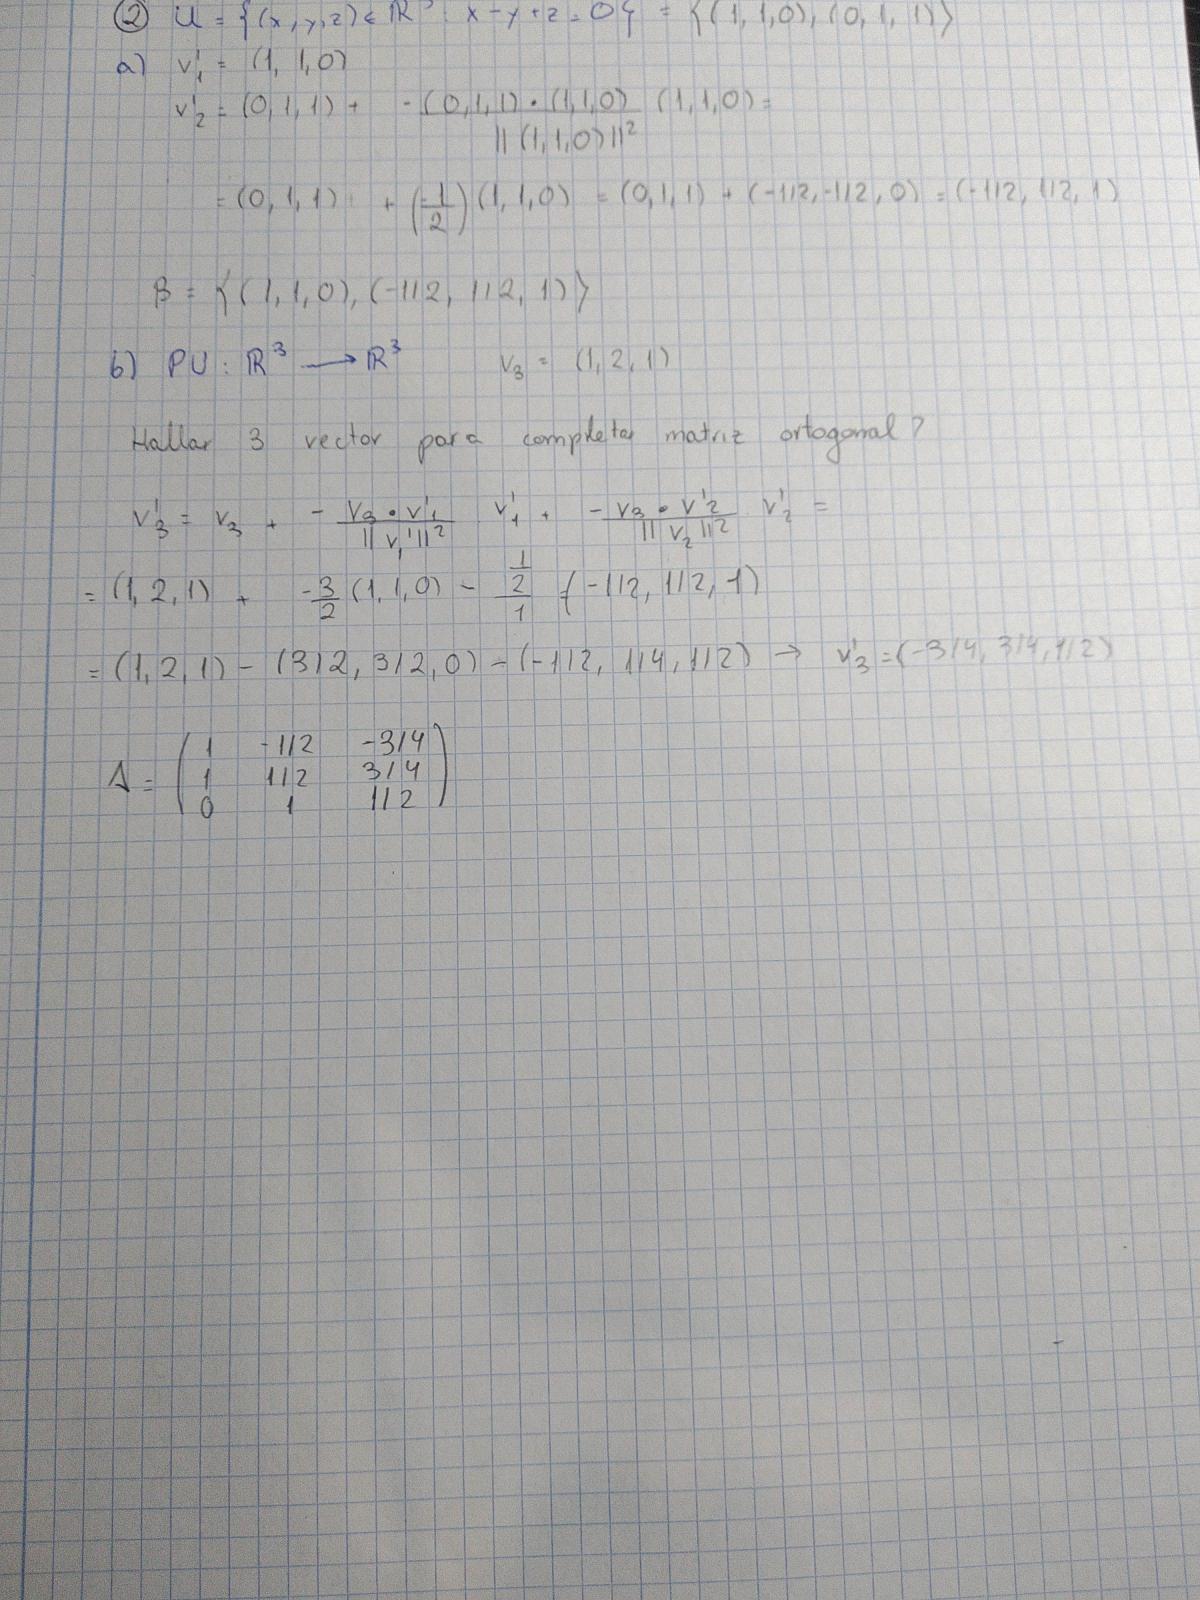 ② U = {(x, y, z) ∈ ℝ³ : x - y + z = 0} = {(1, 1, 0), (0, 1, 1)}
a) v'₁ = (1, 1, 0)
v'₂ = (0, 1, 1) + - (0, 1, 1) • (1, 1, 0) / ||(1, 1, 0)||² (1, 1, 0) =
= (0, 1, 1) + (-1/2) (1, 1, 0) = (0, 1, 1) + (-1/2, -1/2, 0) = (-1/2, 1/2, 1)
B = {(1, 1, 0), (-1/2, 1/2, 1)}
b) PU : ℝ³ → ℝ³ v₃ = (1, 2, 1)
Hallar 3 vector para completar matriz ortogonal?
v'₃ = v₃ + - v₃ • v'₁ / ||v₁'||² v'₁ + - v₃ • v'₂ / ||v₂'||² v'₂ =
= (1, 2, 1) + -3/2 (1, 1, 0) - (1/2)/1 (-1/2, 1/2, 1)
= (1, 2, 1) - (3/2, 3/2, 0) - (-1/2, 1/4, 1/2) → v'₃ = (-3/4, 3/4, 1/2)
A = ( 1 -1/2 -3/4
1 1/2 3/4
0 1 1/2 )